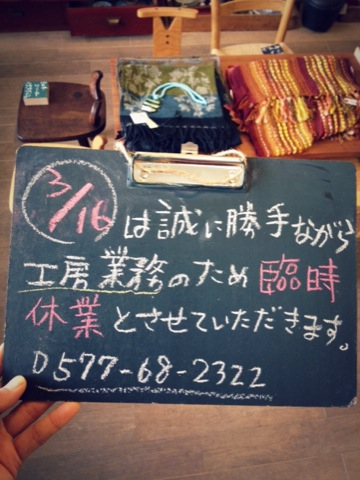 3/16は誠に勝手ながら
工房業務のため臨時
休業とさせていただきます。
0577-68-2322